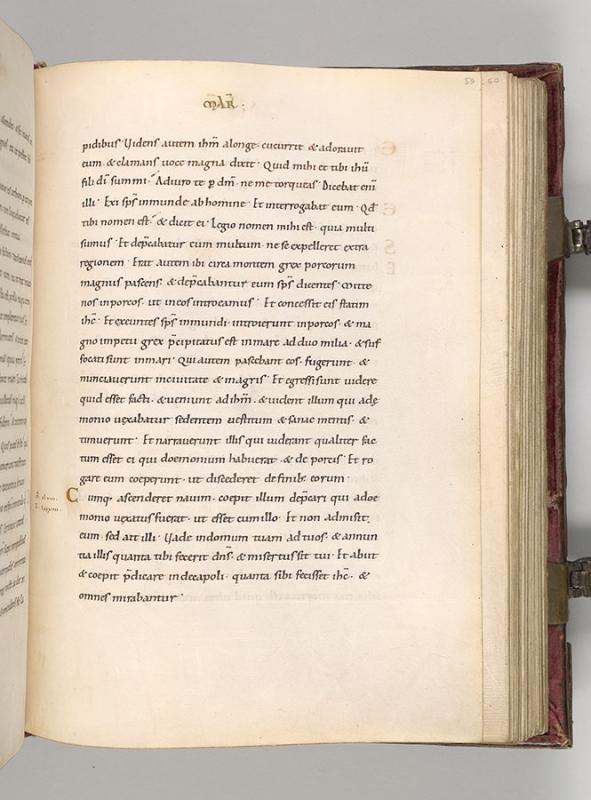 59 60
MAR̄ :
pidibus · Uidens autem ihm̄ alonge · cucurrit · & adorauit
eum · & clamans uoce magna dixit · Quid mihi et tibi ihū
fili dī summi · Adiuro te p dm̄ · ne me torqueas · Dicebat eni̅
illi · Exi sps̄ inmunde ab homine · Et interrogabat eum · Qd̄
tibi nomen est · & dicit ei · Legio nomen mihi est · quia multi
sumus · Et dep̄cabatur eum multum · ne se expelleret extra
regionem · Erat autem ibi circa montem grex porcorum
magnus pascens · & dep̄cabantur eum sps̄ dicentes · Mitte
nos inporcos · ut ineos introeamus · Et concessit eis statim
ihc̄ · Et exeuntes sps̄ inmundi · introierunt inporcos · & ma
gno impetu grex p̄cipitatus est inmare · ad duo milia · & suf
focati sunt inmari · Qui autem pascebant eos · fugerunt · &
nunciauerunt inciuitate & inagris · Et egressi sunt uidere
quid esset facti · & ueniunt ad ihm̄ · & uident illum qui adę
monio uexabatur sedentem uestitum & sanae mentis · &
timuerunt · Et narrauerunt illis qui uiderant qualiter fac
tum esset ei qui doemonium habuerat · & de porcis · Et ro
gare eum coeperunt · ut discederet definib; eorum ·
Cumq; ascenderet nauim · coepit illum dep̄cari qui adoe
monio uexatus fuerat · ut esset cumillo · Et non admisit
eum · sed ait illi · Uade indomum tuam ad tuos · & annun
tia illis quanta tibi fecerit dns̄ · & misertus sit tui · Et abiit
& coepit p̄dicare indecapoli · quanta sibi fecisset ihc̄ · &
omnes mirabantur ·